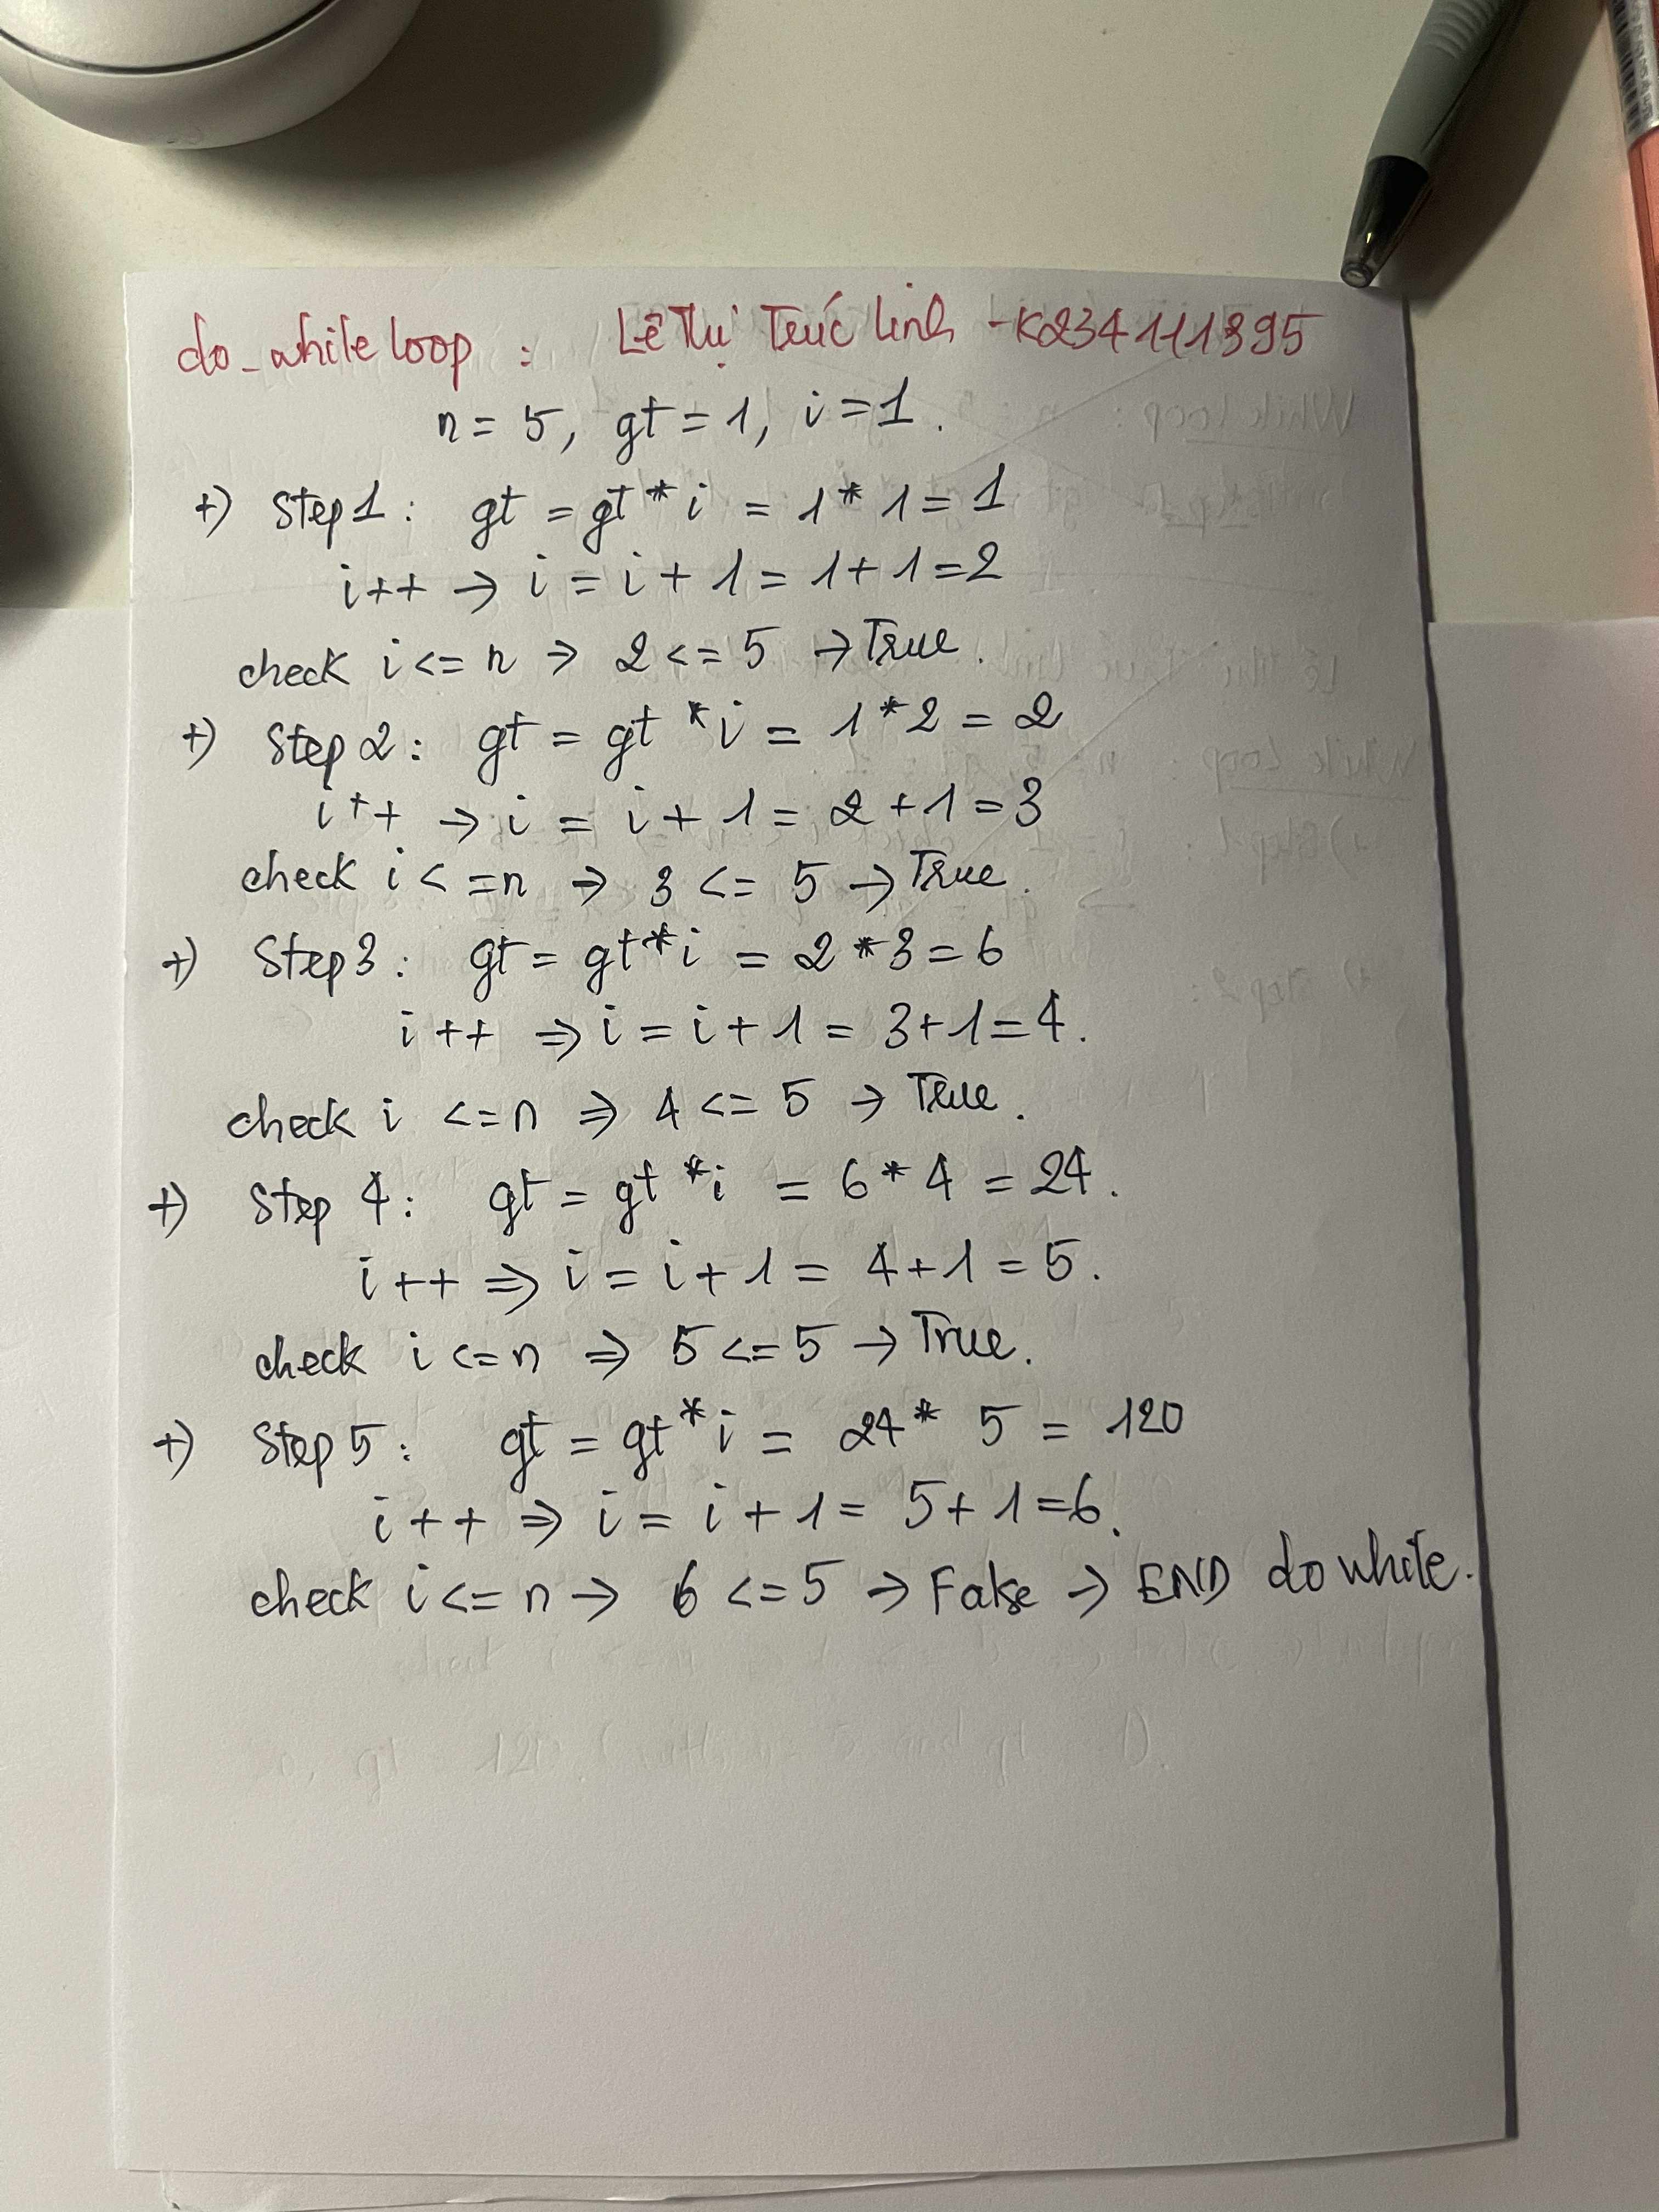 do_while loop : Lê Thị Trúc Linh - K234111395
n = 5, gt = 1, i = 1.
+) Step 1 : gt = gt * i = 1 * 1 = 1
i++ → i = i + 1 = 1 + 1 = 2
check i <= n → 2 <= 5 → True.
+) Step 2 : gt = gt * i = 1 * 2 = 2
i++ → i = i + 1 = 2 + 1 = 3
check i <= n → 3 <= 5 → True.
+) Step 3 : gt = gt * i = 2 * 3 = 6
i++ ⇒ i = i + 1 = 3 + 1 = 4.
check i <= n ⇒ 4 <= 5 → True.
+) Step 4 : gt = gt * i = 6 * 4 = 24.
i++ ⇒ i = i + 1 = 4 + 1 = 5.
check i <= n ⇒ 5 <= 5 → True.
+) Step 5 : gt = gt * i = 24 * 5 = 120
i++ ⇒ i = i + 1 = 5 + 1 = 6.
check i <= n → 6 <= 5 → False → END do while.